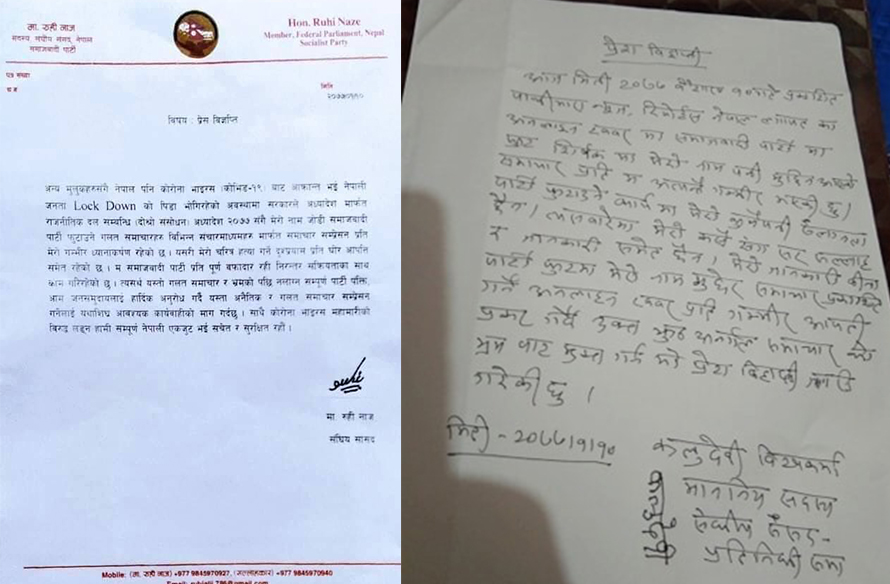 मा. रुही नाज
सदस्य संघीय संसद नेपाल
समाजवादी पार्टी
Hon. Ruhi Naze
Member, Federal Parliament, Nepal
Socialist Party
पत्र संख्या
मिति
विषय : प्रेस विज्ञप्ति
अन्य मुलुकहरुसगै नेपाल पनि कोरोना भाइरस (कोभिड-१९) बाट आक्रान्त भई नेपाली
जनता Lock Down को पिडा भोगिरहेको अवस्थामा सरकारले अध्यादेश मार्फत
राजनीतिक दल सम्बन्धि (दोश्रो संसोधन) अध्यादेश २०७७ संगै मेरो नाम जोडी समाजवादी
पार्टी फुटाउने गलत समाचारहरु विभिन्न संचारमाध्यमहरु मार्फत समाचार सम्प्रेसन प्रति
मेरो गम्भीर ध्यानाकर्षण रहेको छ । यसरी मेरो चरित्र हत्या गर्ने दुश्प्रयास प्रति घोर आपत्ति
समेत रहेको छ । म समाजवादी पार्टी प्रति पूर्ण बफादार रही निरन्तर सक्रियताका साथ
काम गरिरहेको छु । त्यसर्थ यस्तो गलत समाचार र भ्रमको पछि नलाग्न सम्पूर्ण पार्टी पंक्ति,
आम जनसमुदायलाई हार्दिक अनुरोध गर्दै यस्ता अनैतिक र गलत समाचार सम्प्रेसन
गर्नेलाई यथाशिघ्र आवश्यक कार्यवाहीको माग गर्दछु । साथै कोरोना भाइरस महामारीको
विरुद्ध लड्न हामी सम्पूर्ण नेपाली एकजुट भई सचेत र सुरक्षित रहौं ।
मा. रुही नाज
संघिय सांसद
Mobile: (मा. रुही नाज) +977 9845970927, (सल्लाहकार) +977 9845970940
प्रेस विज्ञप्ती
आज मिति 2077 बैशाख १० गते प्रकाशित
समाजवादी पार्टी मा
फुट शिर्षक मा मेरो नाम पनी मुद्दित भएको
समाचार प्रति म गम्भीर भएकी छु ।
पार्टी फुटाउने कार्य मा मेरो कुनैपनी संलग्नता
छैन । त्यसबारेमा मेरो कसै संग सर सल्लाह
र जानकारी समेत छैन । मेरो जानकारी बीना
पार्टी फुटमा मेरो नाम मुछेर समाचार प्रकाशित
गर्ने अनलाइन खबर प्रति गम्भीर आपत्ती
प्रकट गर्दै उक्त झुठ समाचार को
भ्रम बाट मुक्त गर्न यो प्रेस विज्ञप्ती जारी
गरेकी छु ।
मिती - 2077।१।१०
कालुदेवी विश्वकर्मा
माननिय सदस्य
संघीय संसद -
प्रतिनिधी सभा